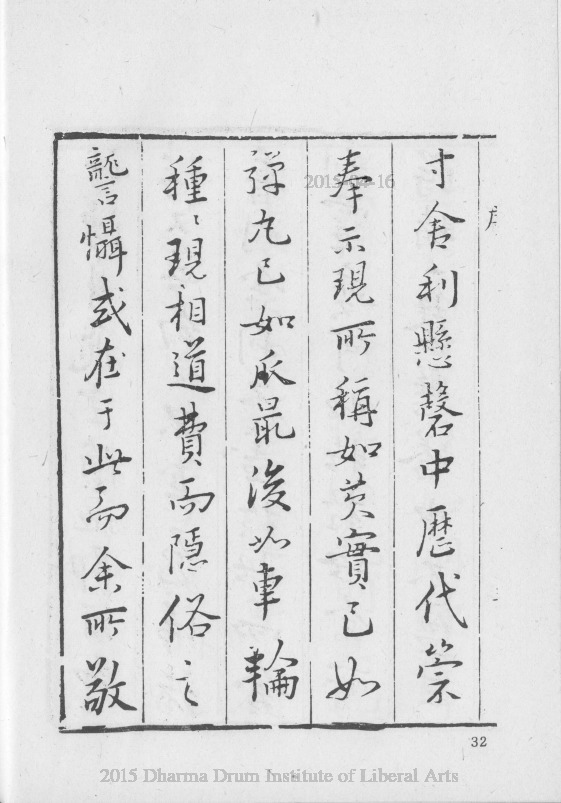 寸舍利懸磬中歷代崇
奉示現所稱如芡實已如
彈丸已如瓜最後如車輪
種〻現相道費而隱俗之
讋懾或在于此而余所敬
32
2015 Dharma Drum Institute of Liberal Arts